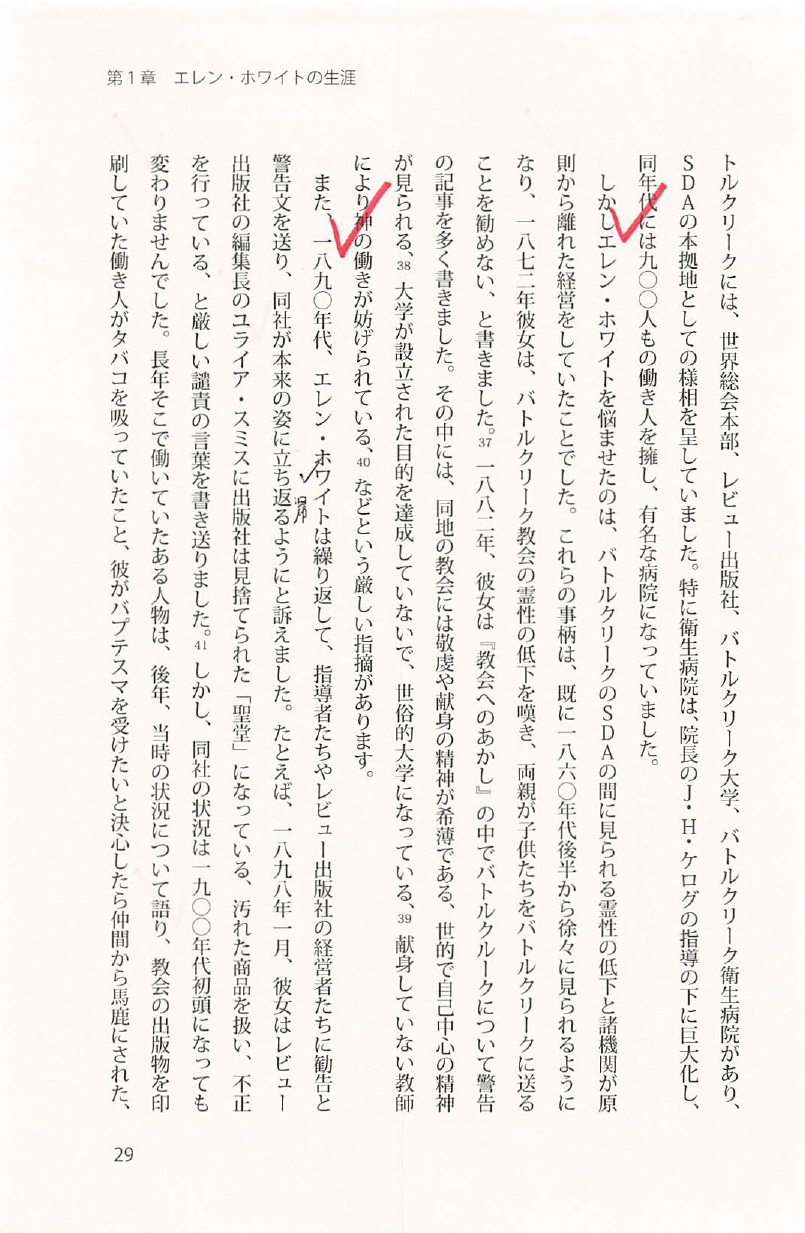 第1章　エレン・ホワイトの生涯
トルクリークには、世界総会本部、レビュー出版社、バトルクリーク大学、バトルクリーク衛生病院があり、
SDAの本拠地としての様相を呈していました。特に衛生病院は、院長のJ・H・ケログの指導の下に巨大化し、
同年代には九〇〇人もの働き人を擁し、有名な病院になっていました。
しかしエレン・ホワイトを悩ませたのは、バトルクリークのSDAの間に見られる霊性の低下と諸機関が原
則から離れた経営をしていたことでした。これらの事柄は、既に一八六〇年代後半から徐々に見られるように
なり、一八七二年彼女は、バトルクリーク教会の霊性の低下を嘆き、両親が子供たちをバトルクリークに送る
ことを勧めない、と書きました。37 一八八二年、彼女は『教会へのあかし』の中でバトルクルークについて警告
の記事を多く書きました。その中には、同地の教会には敬虔や献身の精神が希薄である、世的で自己中心の精神
が見られる、38 大学が設立された目的を達成していないで、世俗的大学になっている、39 献身していない教師
により神の働きが妨げられている、40 などという厳しい指摘があります。
また、一八九〇年代、エレン・ホワイトは繰り返して、指導者たちやレビュー出版社の経営者たちに勧告と
警告文を送り、同社が本来の姿に立ち返るようにと訴えました。たとえば、一八九八年一月、彼女はレビュー
出版社の編集長のユライア・スミスに出版社は見捨てられた「聖堂」になっている、汚れた商品を扱い、不正
を行っている、と厳しい譴責の言葉を書き送りました。41 しかし、同社の状況は一九〇〇年代初頭になっても
変わりませんでした。長年そこで働いていたある人物は、後年、当時の状況について語り、教会の出版物を印
刷していた働き人がタバコを吸っていたこと、彼がバプテスマを受けたいと決心したら仲間から馬鹿にされた、
29